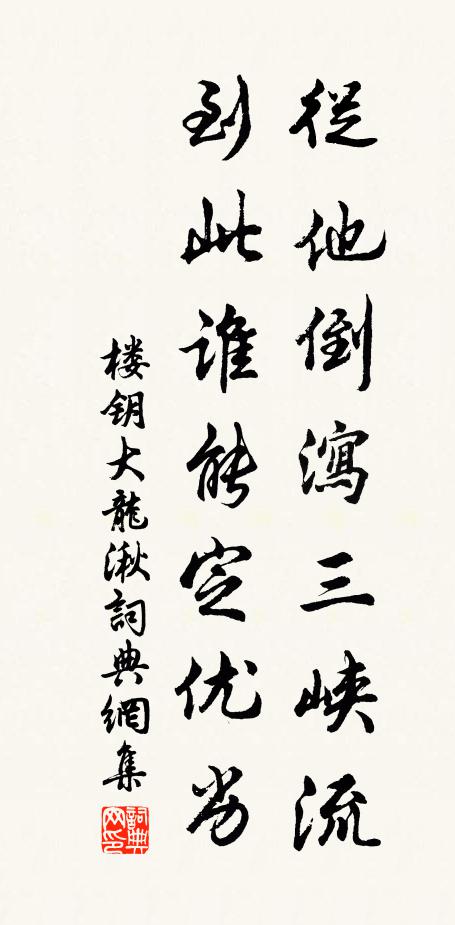 從他倒瀉三峽流
到此谁能定优劣
楼钥大龍湫詞典網集
詞典网印